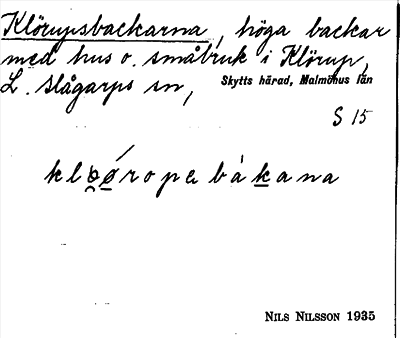 Klörupsbackarna, höga backar
med hus o. småbruk i Klörup,
L. Slågarps sn, Skytts härad, Malmöhus län
S 15
NILS NILSSON 1935